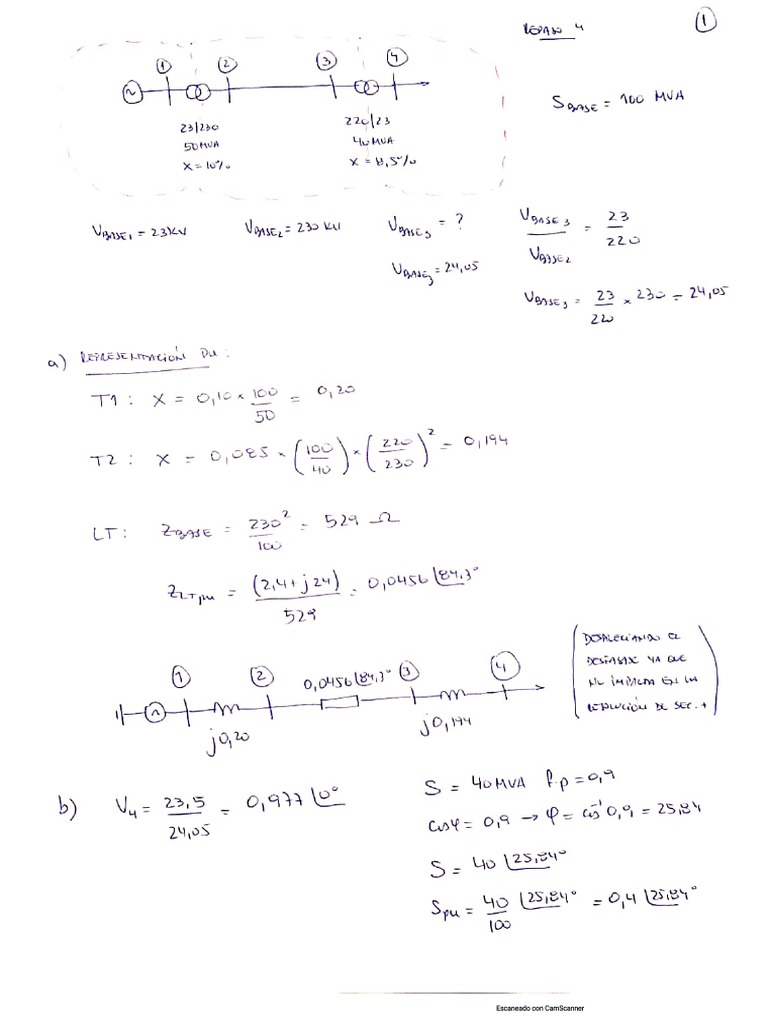 REPASO 4
1
1
2
3
4
SBASE = 100 MVA
23/230
50MVA
X = 10%
220/23
40MVA
X = 8,5%
VBASE1 = 23KV
VBASE2 = 230 KV
VBASE3 = ?
VBASE3 / VBASE2 = 23 / 220
VBASE3 = 24,05
VBASE3 = 23/220 × 230 = 24,05
a) REPRESENTACIÓN PU:
T1: X = 0,10 × 100/50 = 0,20
T2: X = 0,085 × (100/40) × (220/230)² = 0,194
LT: ZBASE = 230²/100 = 529 Ω
ZLTpu = (2,4 + j24)/529 = 0,0456 ∠84,3°
1
2
0,0456 ∠84,3°
3
4
j0,20
j0,194
(DESPRECIANDO EL
DESFASAJE YA QUE
NO IMPACTA EN LA
RESOLUCIÓN DE SEC. +)
b) V4 = 23,5/24,05 = 0,977 ∠0°
S = 40MVA f.p = 0,9
cosφ = 0,9 → φ = cos⁻¹ 0,9 = 25,84
S = 40 ∠25,84°
Spu = 40/100 ∠25,84° = 0,4 ∠25,84°
Escaneado con CamScanner